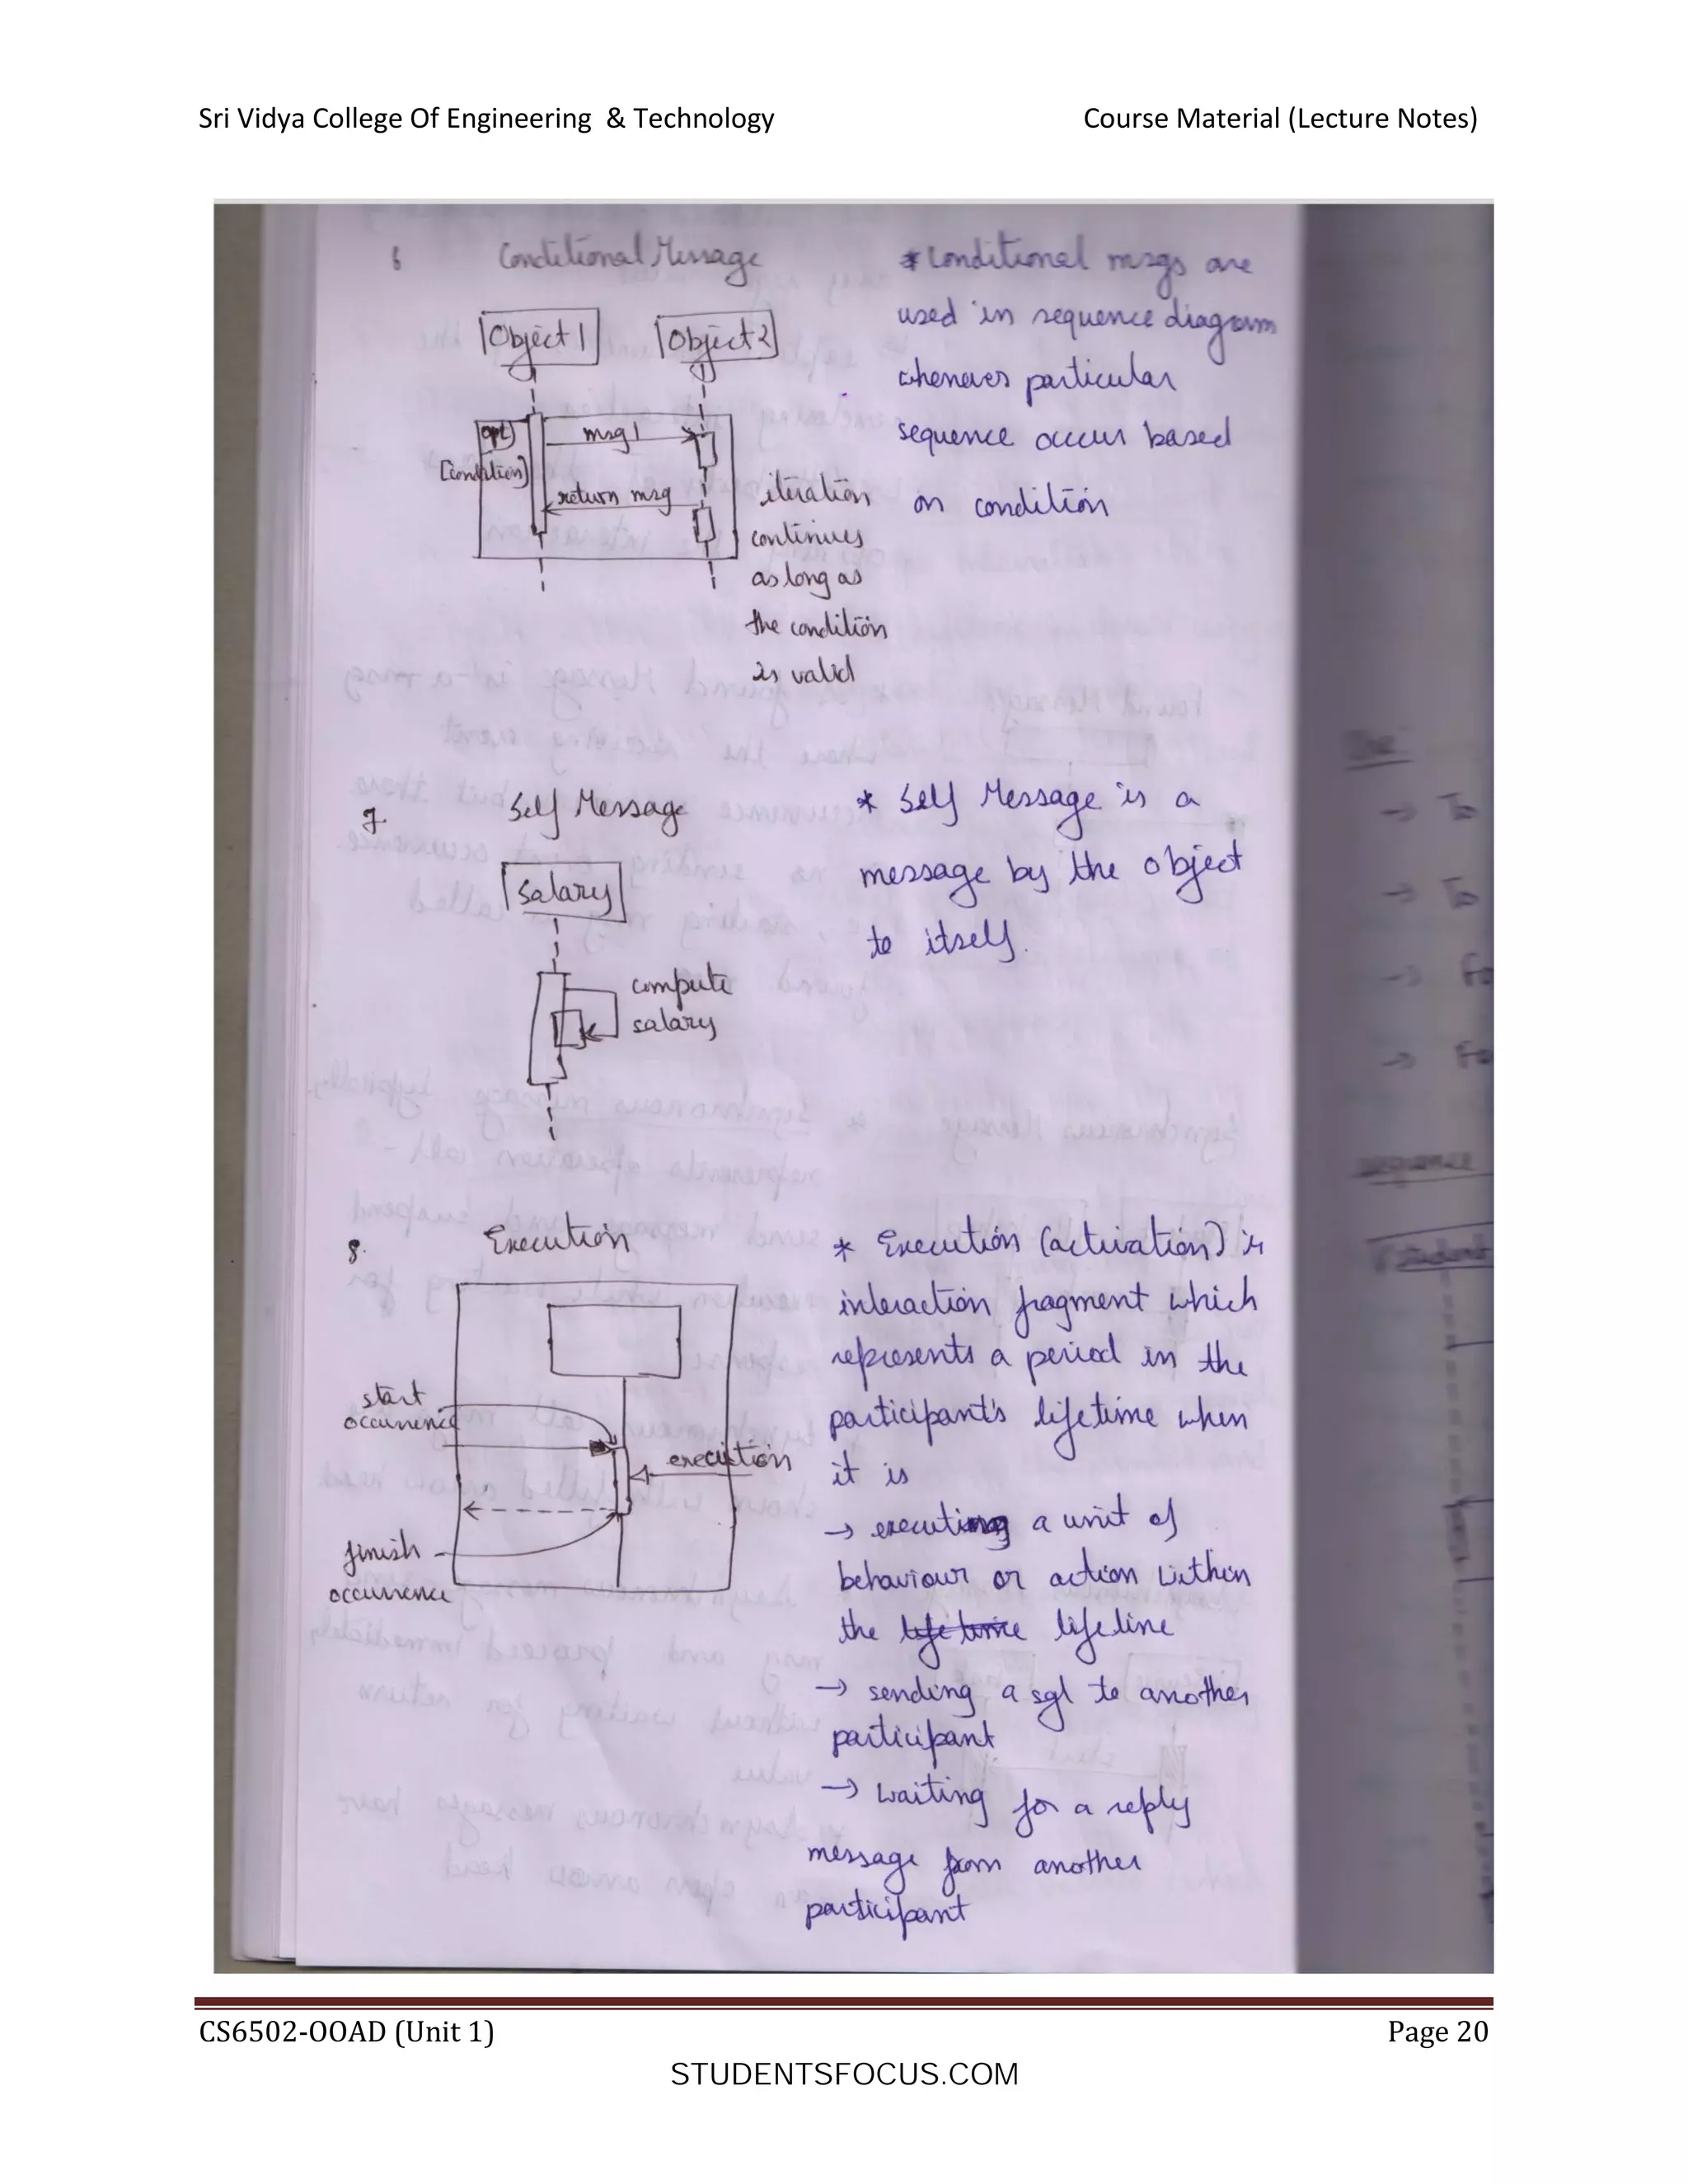 Sri Vidya College Of Engineering & Technology Course Material (Lecture Notes)
6 Conditional Message
Object 1 Object 2
opt
[condition]
msg 1
return msg
iteration
continues
as long as
the condition
is valid
* Conditional msgs are
used in sequence diagram
whenever particular
sequence occur based
on condition
7. Self Message
Salary
compute
salary
* Self Message is a
message by the object
to itself.
8. Execution
start
occurrence
execution
finish
occurrence
* Execution (activation) is
interaction fragment which
represents a period in the
participant's lifetime when
it is
→ executing a unit of
behaviour or action within
the life time lifeline
→ sending a sgl to another
participant
→ waiting for a reply
message from another
participant
CS6502-OOAD (Unit 1) Page 20
STUDENTSFOCUS.COM